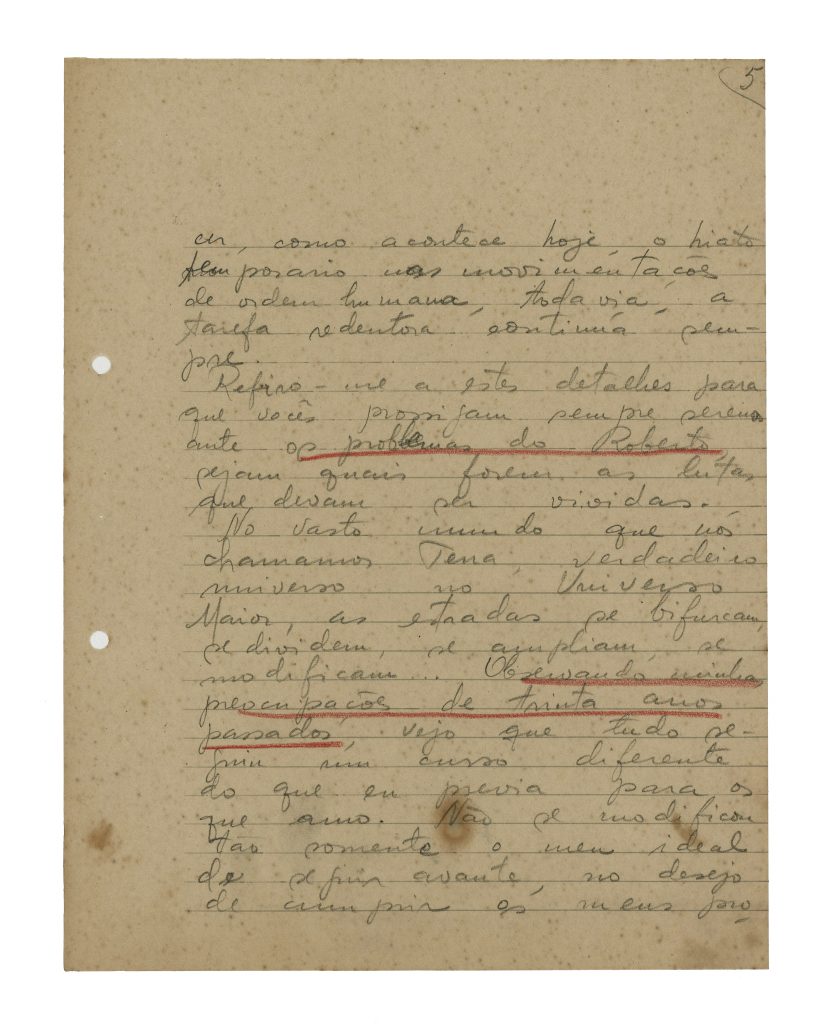 5
cer, como acontece hoje, o hiato
temporario nas movimentações
de ordem humana, todavia, a
tarefa redentora continúa sem-
pre.
Refiro-me a estes detalhes para
que vocês prossigam sempre serenos
ante os problemas do Roberto,
sejam quais forem as lutas
que devam ser vividas.
No vasto mundo que nós
chamamos Terra, verdadeiro
universo no Universo
Maior, as estradas se bifurcam,
se dividem, se ampliam, se
modificam... Observando minhas
preocupações de trinta anos
passados, vejo que tudo se-
guiu um curso diferente
do que eu previa para os
que amo. Não se modificou
tão somente o meu ideal
de seguir avante, no desejo
de cumprir os meus pro-